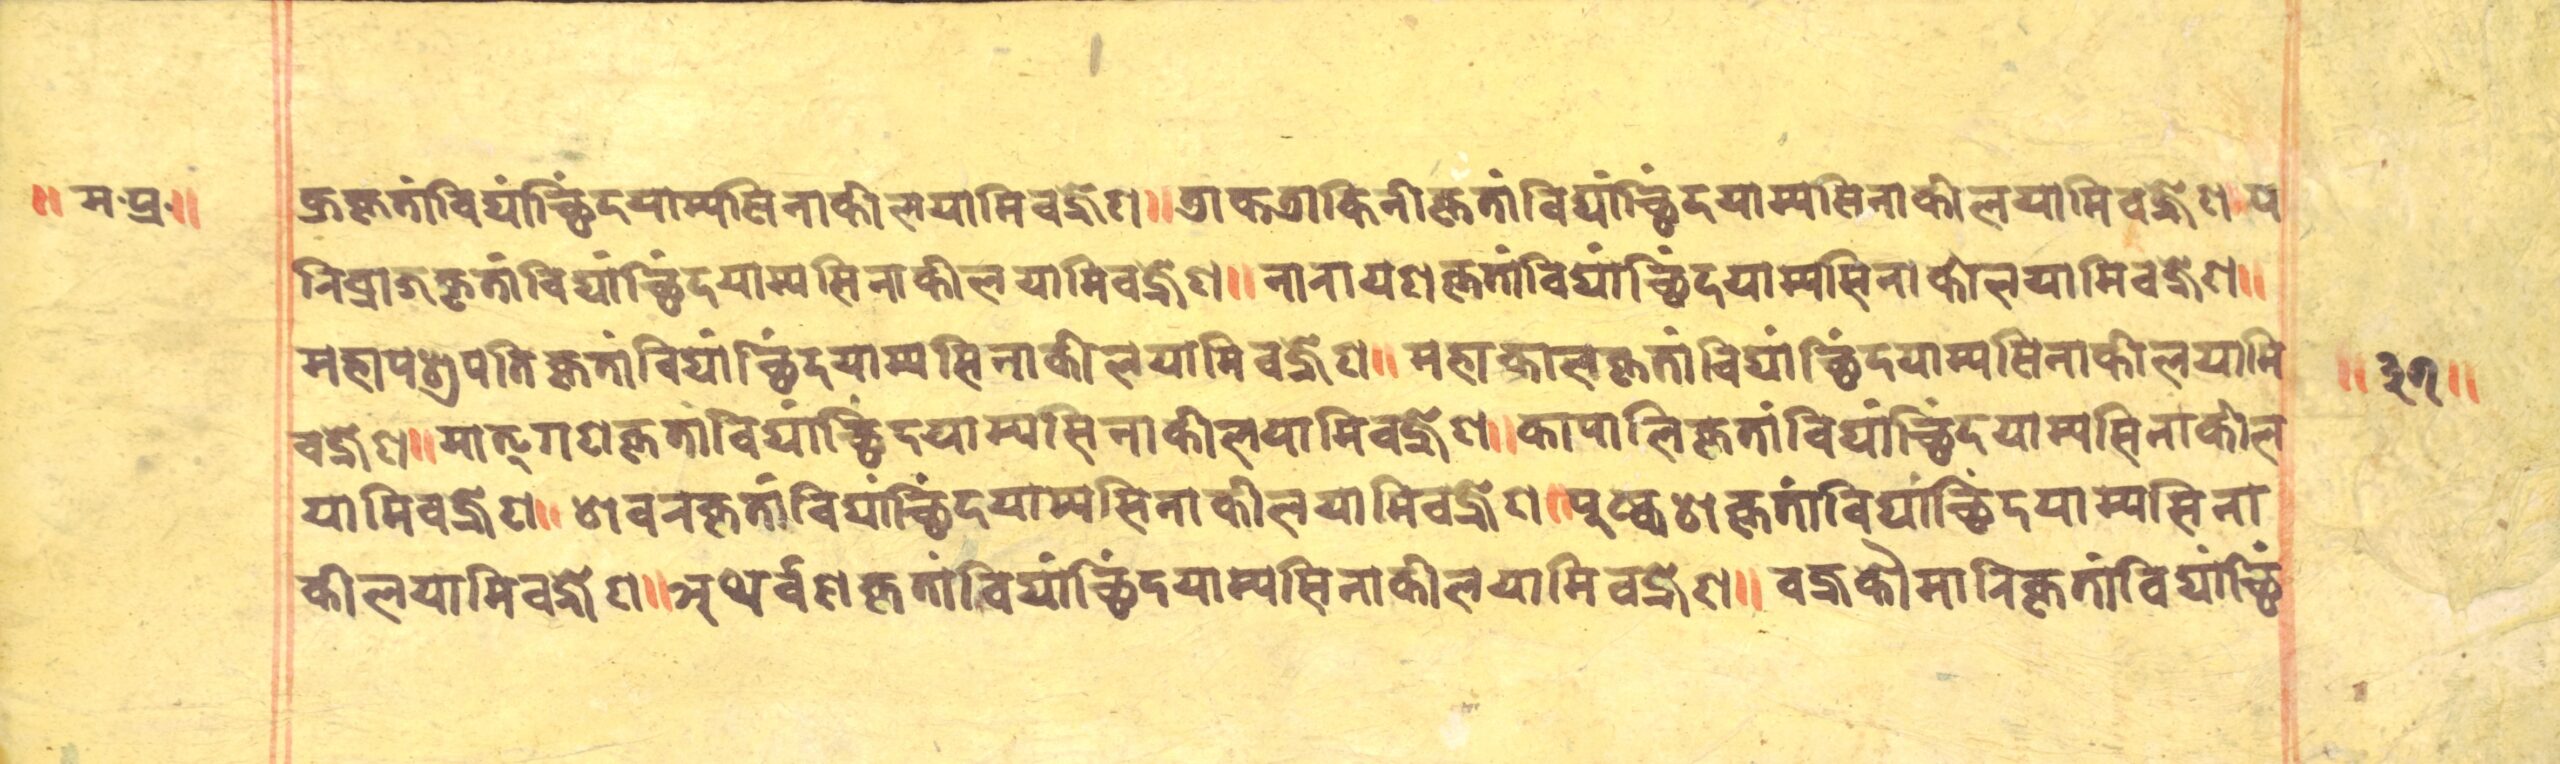 ॥ म·प्र·॥
क्रकृतांविद्यांच्छिंदयाम्यसिनाकीलयामिवज्रेण॥ डाकडाकिनीकृतांविद्यांच्छिंदयाम्यसिनाकीलयामिवज्रेण॥ प
रिव्राजकृतांविद्यांच्छिंदयाम्यसिनाकीलयामिवज्रेण॥ नारायणकृतांविद्यांच्छिंदयाम्यसिनाकीलयामिवज्रेण॥
महापशुपतिकृतांविद्यांच्छिंदयाम्यसिनाकीलयामिवज्रेण॥ महाकालकृतांविद्यांच्छिंदयाम्यसिनाकीलयामि
वज्रेण॥ मातृगणकृतांविद्यांच्छिंदयाम्यसिनाकीलयामिवज्रेण॥ कापालिकृतांविद्यांच्छिंदयाम्यसिनाकील
यामिवज्रेण॥ शवरकृतांविद्यांच्छिंदयाम्यसिनाकीलयामिवज्रेण॥ पुक्कशकृतांविद्यांच्छिंदयाम्यसिना
कीलयामिवज्रेण॥ अथर्वणकृतांविद्यांच्छिंदयाम्यसिनाकीलयामिवज्रेण॥ वज्रकौमारिकृतांविद्यांच्छिं